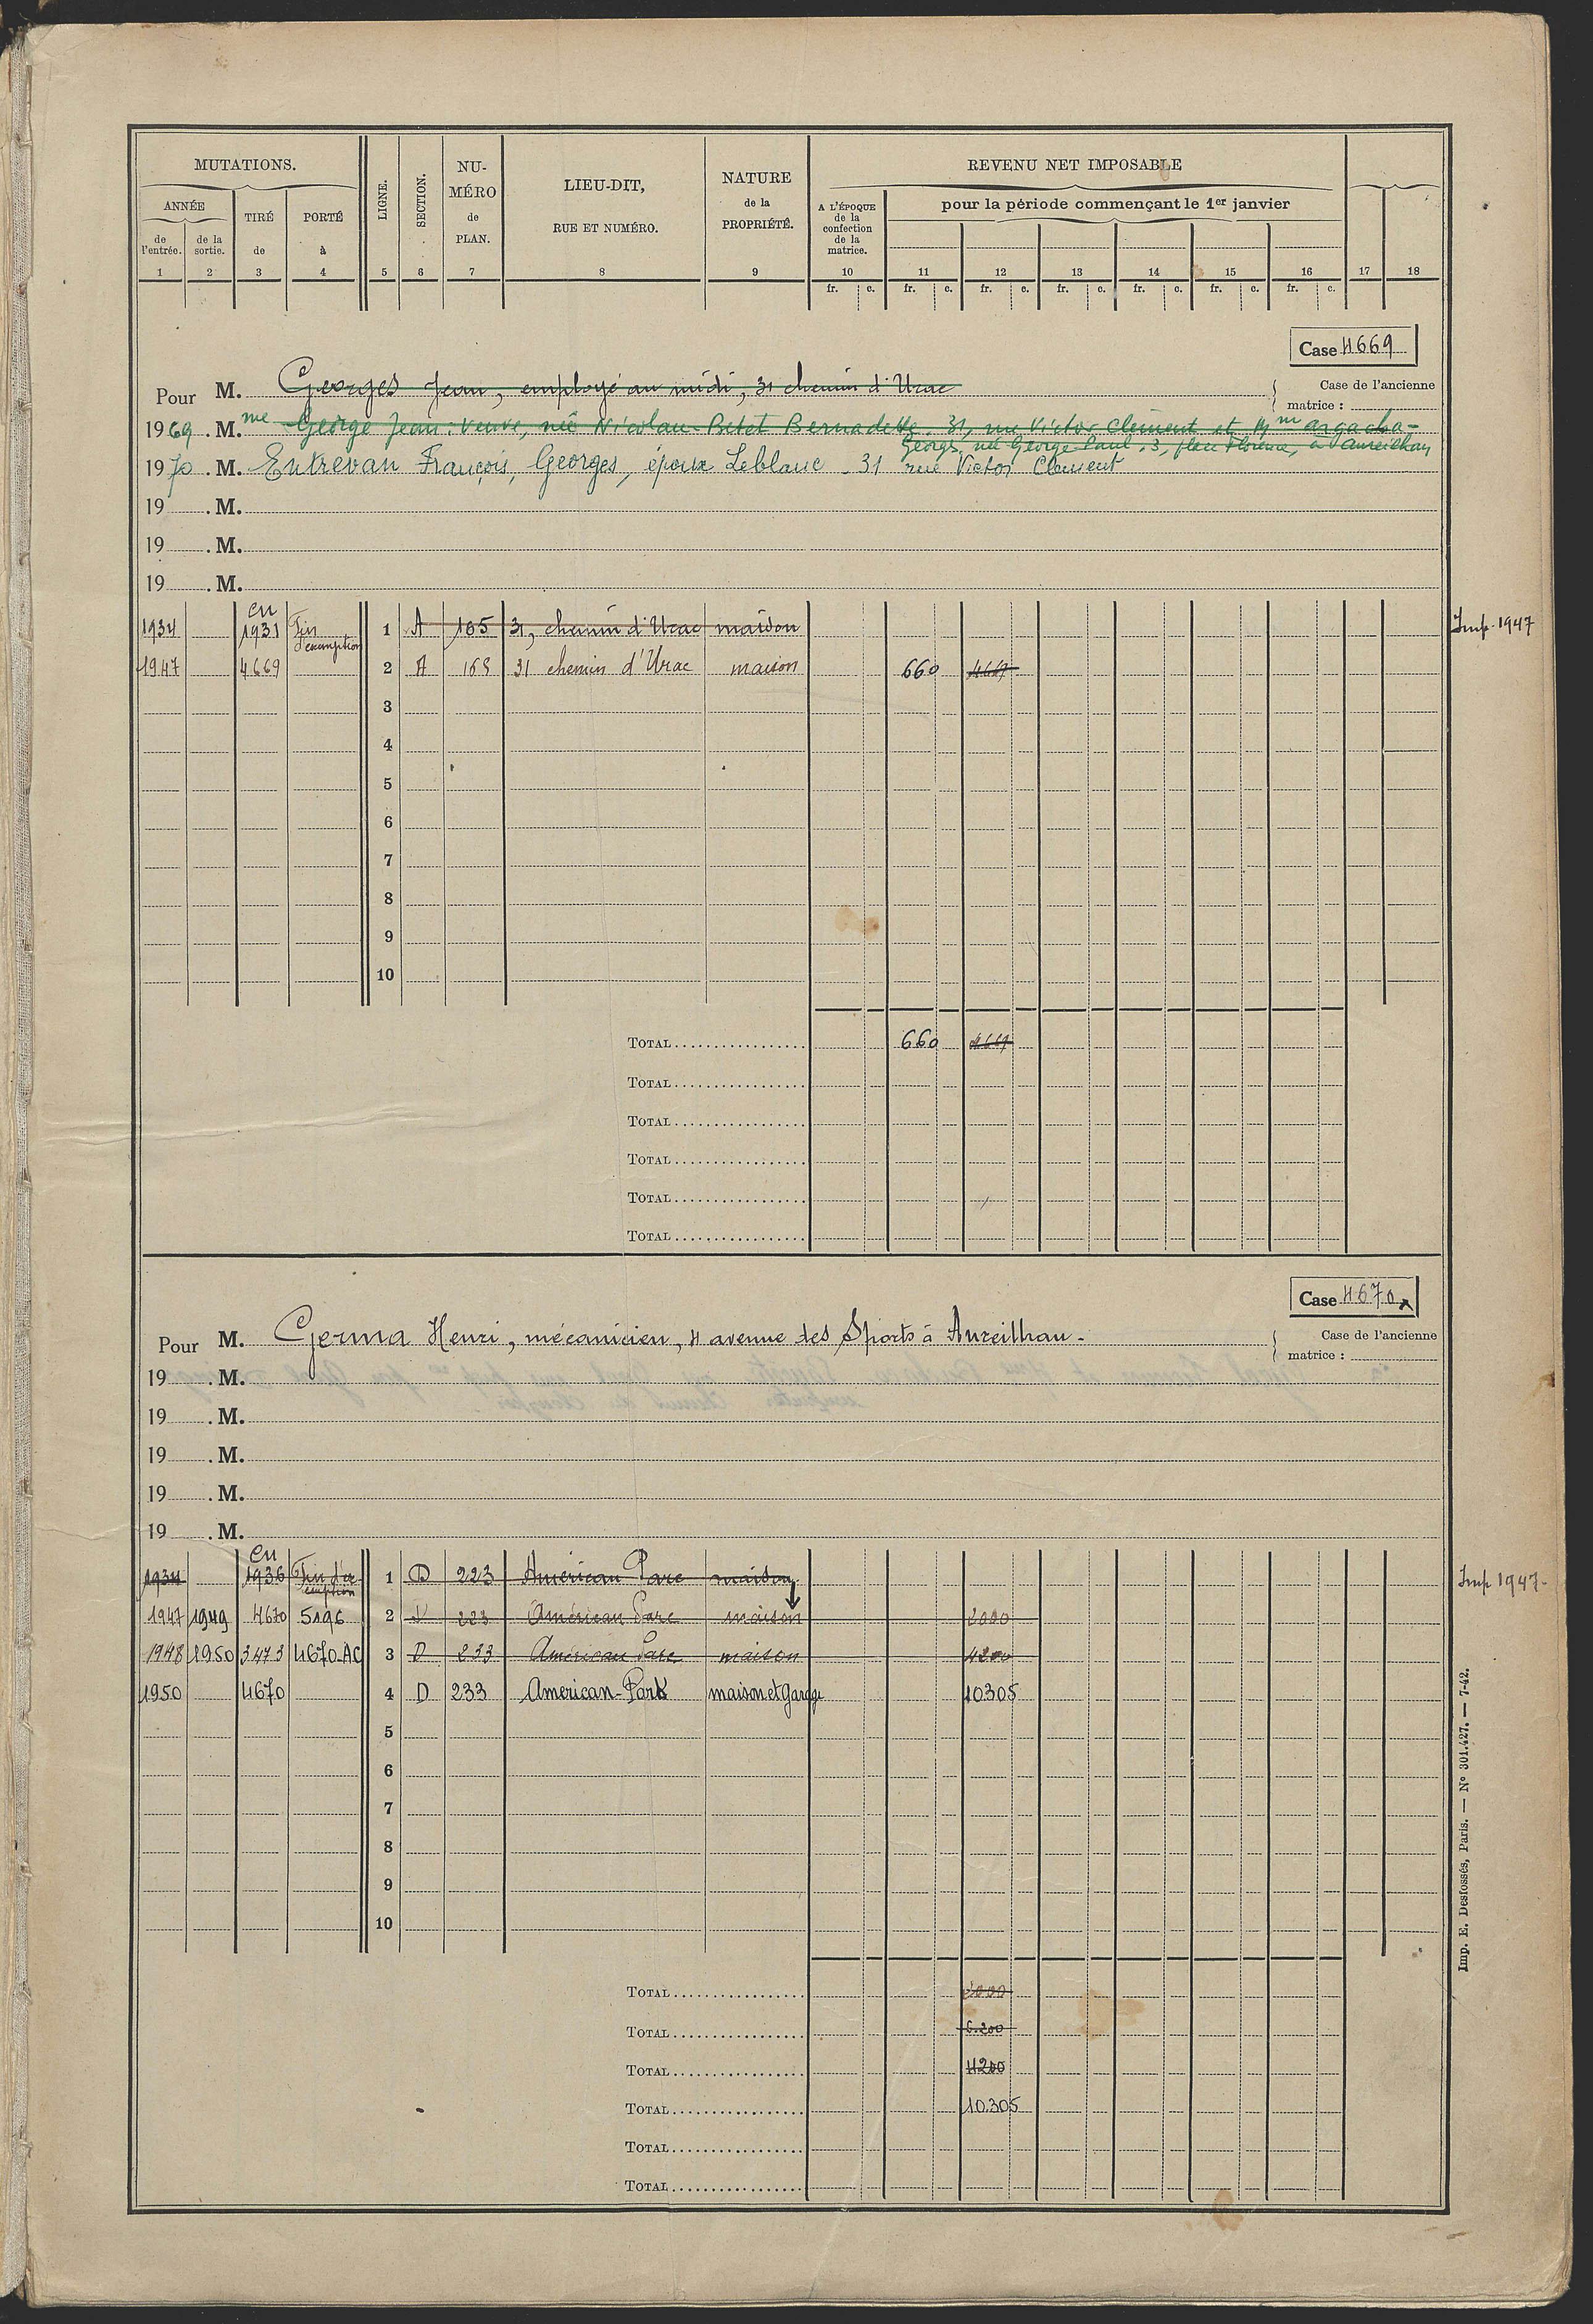 MUTATIONS.
ANNÉE
de l'entrée.
de la sortie.
TIRÉ de
PORTÉ à
LIGNE.
SECTION.
NU-
MÉRO
de
PLAN.
LIEU-DIT,
RUE ET NUMÉRO.
NATURE
de la
PROPRIÉTÉ.
REVENU NET IMPOSABLE
A L'ÉPOQUE
de la
confection
de la
matrice.
pour la période commençant le 1er janvier
1 2 3 4 5 6 7 8 9 10 11 12 13 14 15 16 17 18
fr. c. fr. c. fr. c. fr. c. fr. c. fr. c. fr. c.
Case 4669
Pour M. Georges Jean, employé au midi, 31 chemin d'Urac
Case de l'ancienne
matrice :
1969. M.me George Jean : Veuve, née Nicolau-Betet Bernadette. 31, rue Victor Clément et
George, née George Paul. 3, place
1970. M. Entrevan François, Georges, époux Leblanc. 31 rue Victor Clément
19 . M.
19 . M.
19 . M.
1934 en 1931 Fin d'exemption 1 A 165 31, chemin d'Urac maison Imp. 1947
1947 4669 2 A 165 31 chemin d'Urac maison 660
3
4
5
6
7
8
9
10
TOTAL 660
TOTAL
TOTAL
TOTAL
TOTAL
TOTAL
Case 4670
Pour M. Germa Henri, mécanicien, 4 avenue des Sports à Aureilhan.
Case de l'ancienne
matrice :
19 . M.
19 . M.
19 . M.
19 . M.
19 . M.
1934 en 1936 Fin d'exemption 1 D 223 Américan Parc maison Imp. 1947
1947 1949 4670 5196 2 D 223 Américan Parc maison 2000
1948 1950 3473 4670-AC 3 D 233 Américan Parc maison 4200
1950 4670 4 D 233 American-Park maison et garage 10305
5
6
7
8
9
10
TOTAL 2000
TOTAL 6.200
TOTAL 4200
TOTAL 10.305
TOTAL
TOTAL
Imp. E. Desfossés, Paris. — N° 301.427. — 7-42.